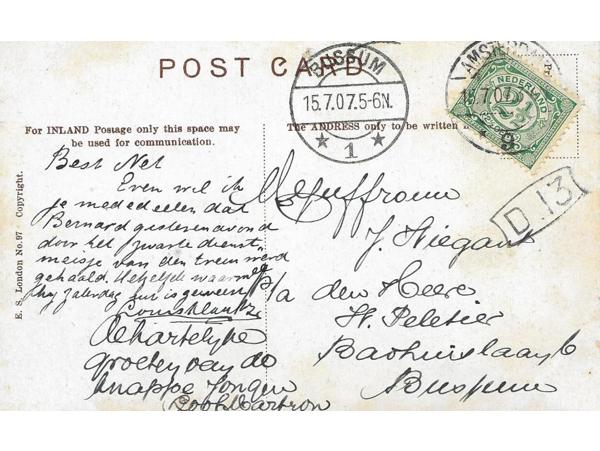 POST CARD
BUSSUM
15.7.07.5-6N.
1
AMSTERDAM
15.7.07
9
NEDERLAND
2½
For INLAND Postage only this space may
be used for communication.
The ADDRESS only to be written
Best Net
Even wil ik
je mededeelen dat
Bernard gisterenavond
door het zwarte dienst-
meisje van den trein werd
gehaald. Hetzelfde waarmee
hij Zaterdag
is geweest
de hartelijke
groeten van de
knappe jongen
Mejuffrouw
J. Wiegant
p/a den Heere
H. Peletier
Bussum
D.13
E. S. London No.97 Copyright.